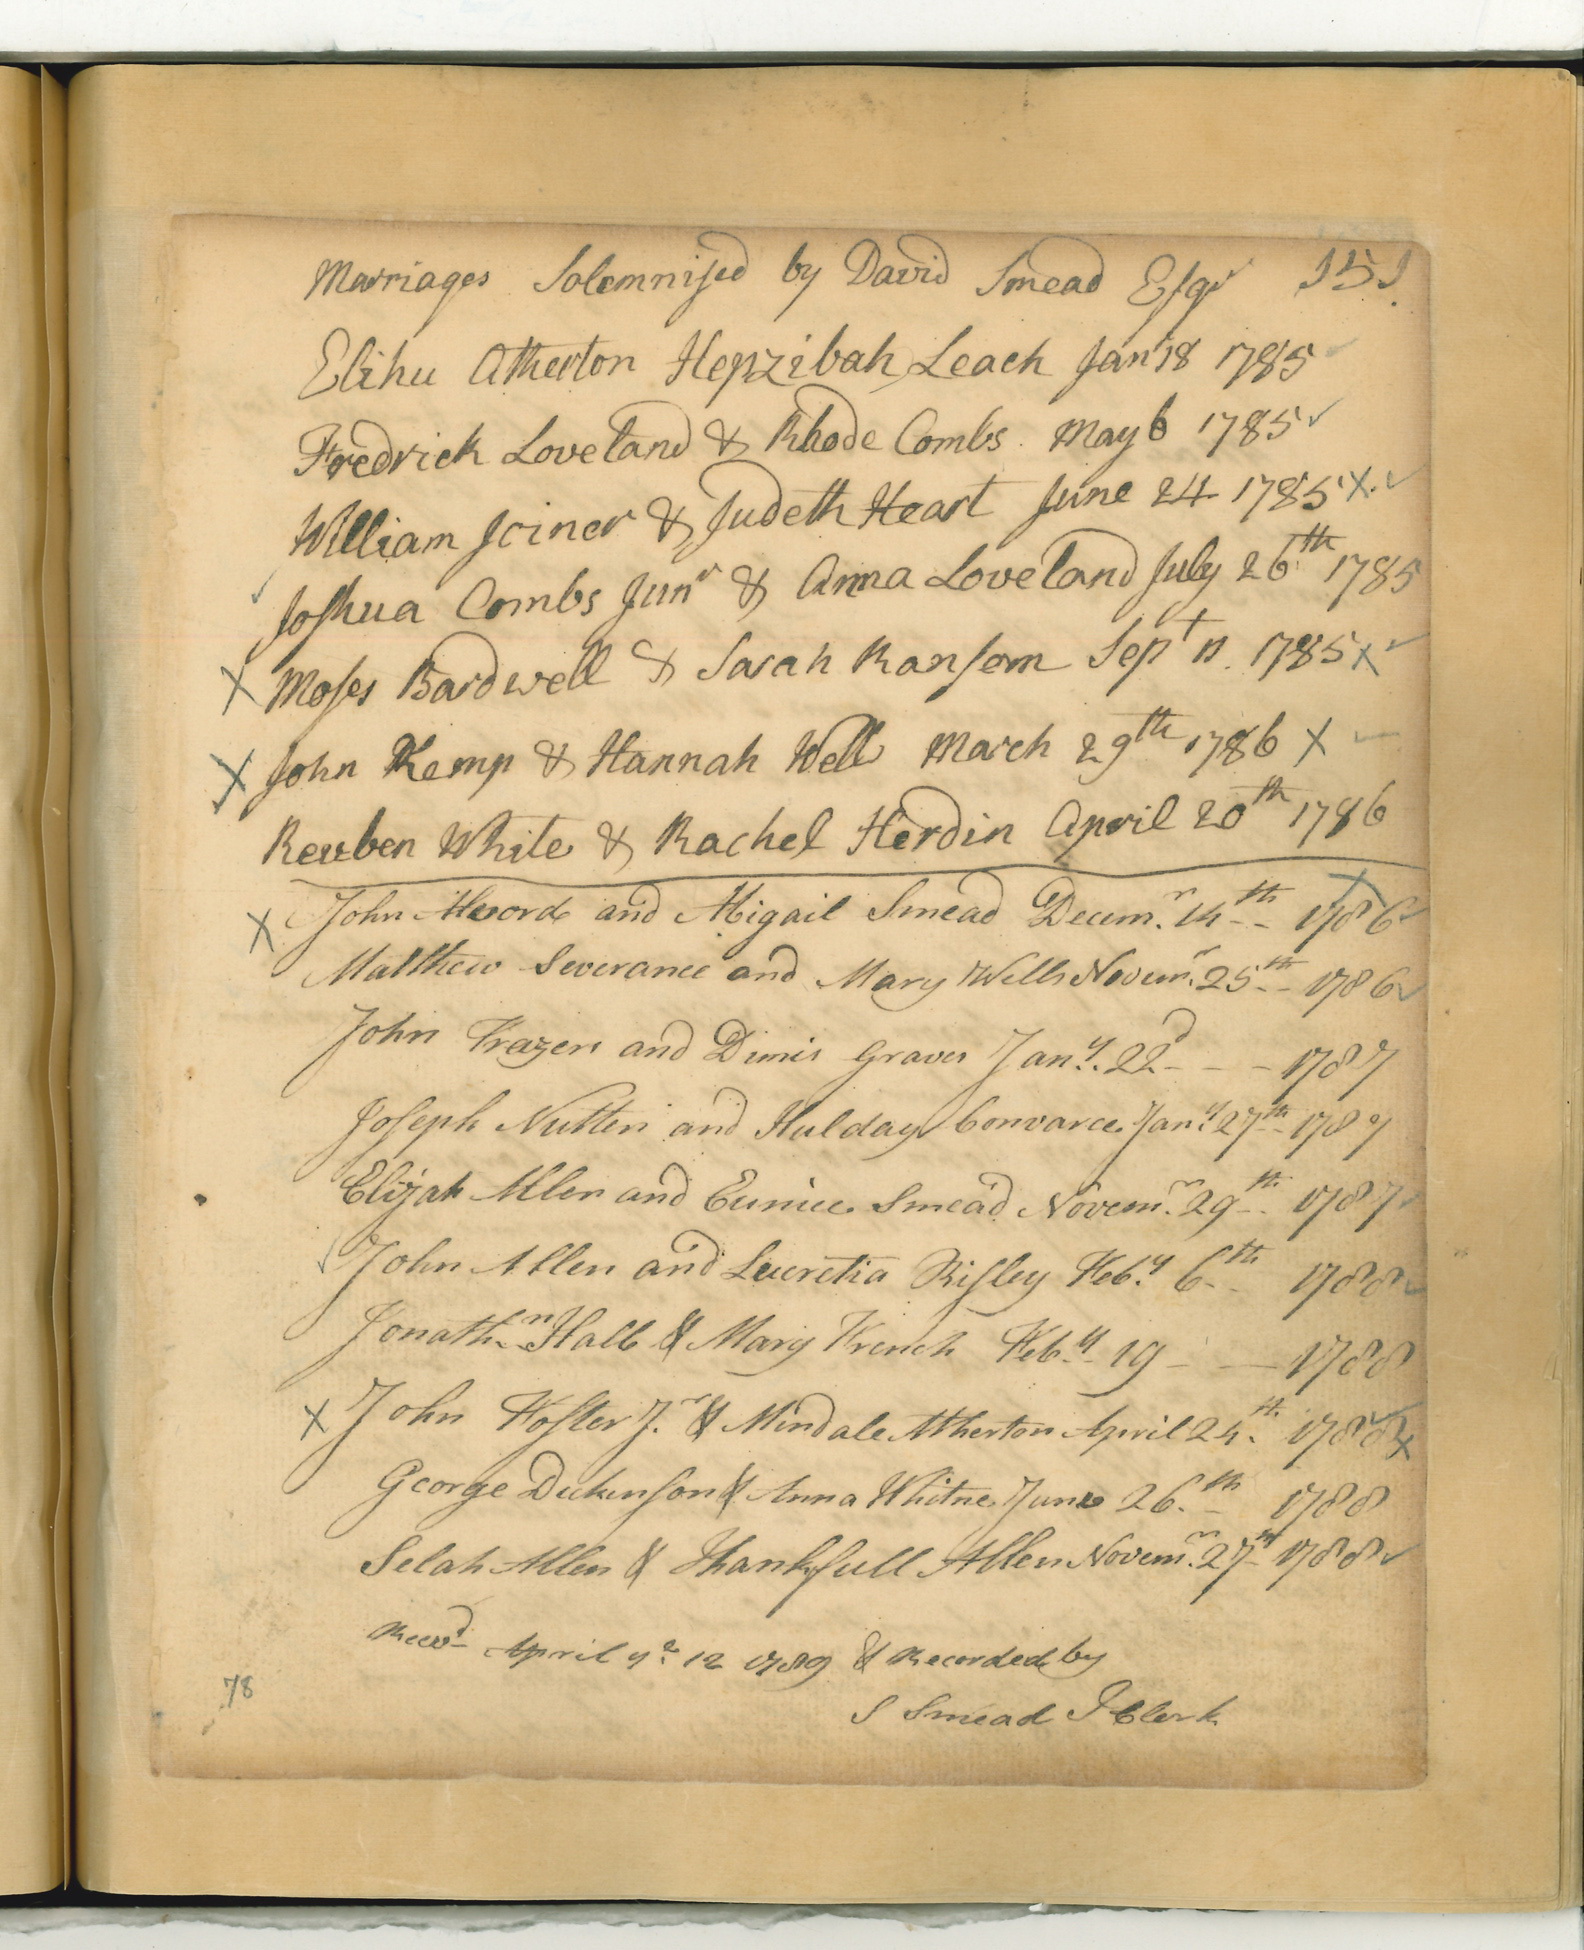 Marriages Solemnised by David Smead Esqr 151
Elihu Atherton Hepzibah Leach Janr 18 1785
Fredrick Loveland & Rhode Combs May 6 1785
William Joiner & Judeth Heart June 24 1785 X
Joshua Combs Junr & Anna Loveland July 26th 1785
X Moses Bardwell & Sarah Ransom Sept 11 1785 X
X John Kemp & Hannah Well March 29th 1786 X
Reuben White & Rachel Herdin April 20th 1786
X John Alvord and Abigail Smead Decemr. 14th 1786
Matthew Severance and Mary Wells Novemr. 25th 1786
John Frazer and Dimis Graves Jany. 22d 1787
Joseph Nutten and Hulday Convarce Jany 27th 1787
Elijah Allen and Eunice Smead Novemr. 29th 1787
John Allen and Lucretia Risley Feby. 6th 1788
Jonathn Hall & Mary French Feby 19 1788
X John Foster Jr. & Mindale Atherton April 24th 1788 X
George Dickinson & Anna Whitne June 26th 1788
Selah Allen & Thankfull Allen Novemr. 27th 1788
Recevd April ye 12 1789 & Recorded by
S Smead T Clerk
78